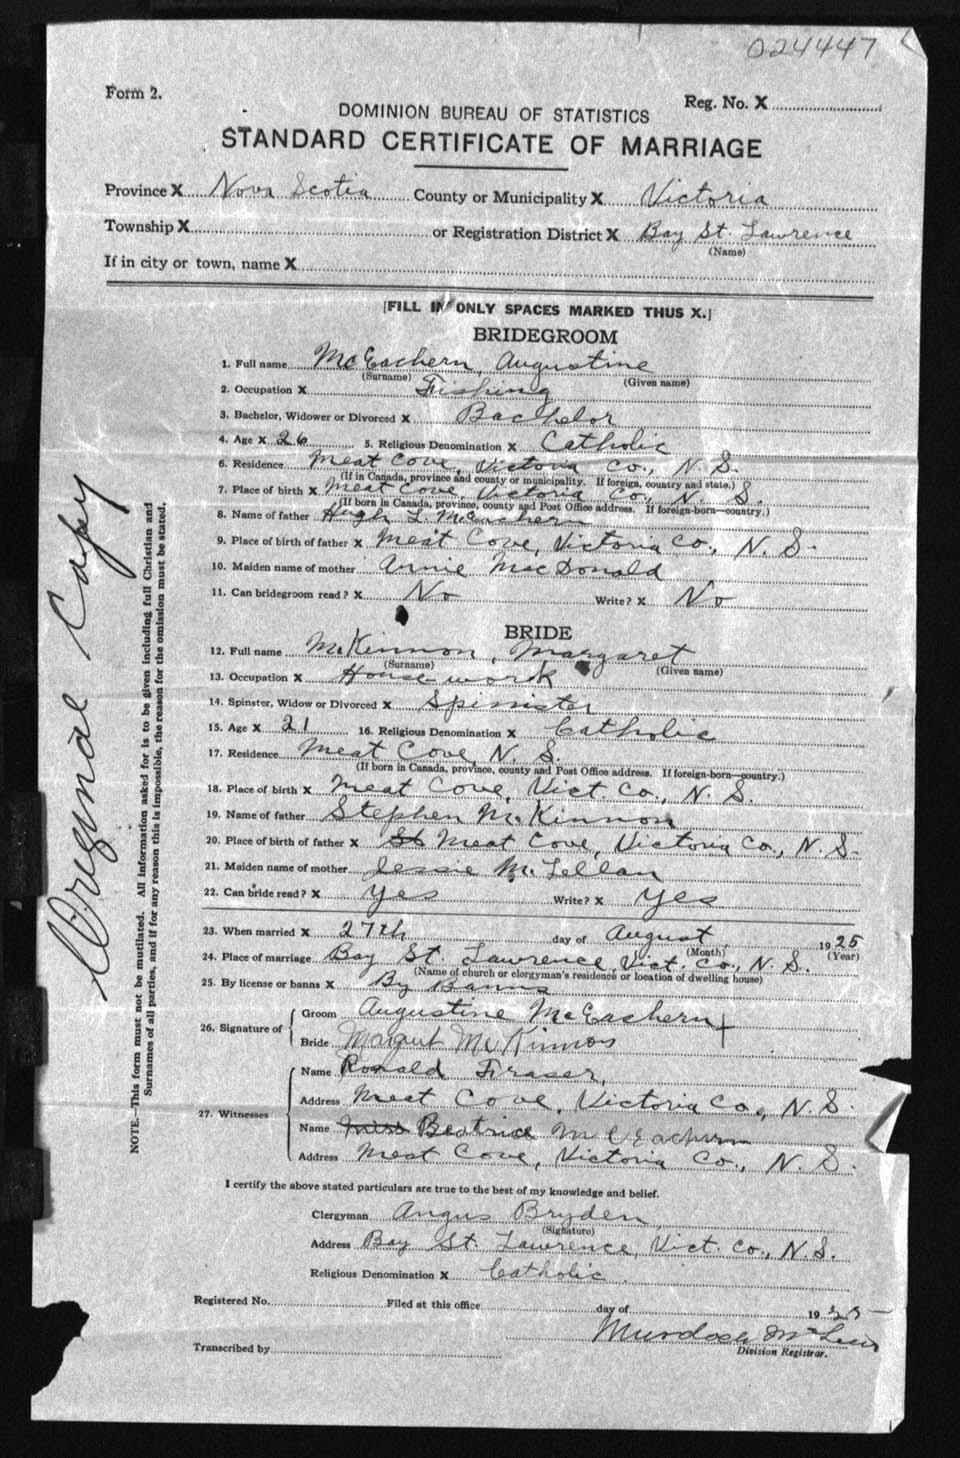 024447
Form 2.
Reg. No. X
DOMINION BUREAU OF STATISTICS
STANDARD CERTIFICATE OF MARRIAGE
Province X Nova Scotia County or Municipality X Victoria
Township X or Registration District X Bay St. Lawrence
(Name)
If in city or town, name X
[FILL IN ONLY SPACES MARKED THUS X.]
BRIDEGROOM
1. Full name McEachern, Augustine
(Surname) (Given name)
2. Occupation X Fishing
3. Bachelor, Widower or Divorced X Bachelor
4. Age X 26 5. Religious Denomination X Catholic
6. Residence Meat Cove, Victoria Co., N. S.
(If in Canada, province and county or municipality. If foreign, country and state.)
7. Place of birth X Meat Cove, Victoria Co., N. S.
(If born in Canada, province, county and Post Office address. If foreign-born—country.)
8. Name of father Hugh L. McEachern
9. Place of birth of father X Meat Cove, Victoria Co., N. S.
10. Maiden name of mother Annie MacDonald
11. Can bridegroom read? X No Write? X No
BRIDE
12. Full name McKinnon, Margaret
(Surname) (Given name)
13. Occupation X House work
14. Spinster, Widow or Divorced X Spinister
15. Age X 21 16. Religious Denomination X Catholic
17. Residence Meat Cove, N. S.
(If born in Canada, province, county and Post Office address. If foreign-born—country.)
18. Place of birth X Meat Cove, Vict. Co., N. S.
19. Name of father Stephen McKinnon
20. Place of birth of father X St Meat Cove, Victoria Co., N. S.
21. Maiden name of mother Jessie McLellan
22. Can bride read? X Yes Write? X Yes
23. When married X 27th day of August 1925
(Month) (Year)
24. Place of marriage Bay St. Lawrence, Vict. Co., N. S.
(Name of church or clergyman's residence or location of dwelling house)
25. By license or banns X By Banns
26. Signature of { Groom Augustine McEachern +
Bride Margaret McKinnon
27. Witnesses { Name Ronald Fraser,
Address Meat Cove, Victoria Co., N. S.
Name Miss Beatrice McEachern
Address Meat Cove, Victoria Co., N. S.
I certify the above stated particulars are true to the best of my knowledge and belief.
Clergyman Angus Bryden,
(Signature)
Address Bay St. Lawrence, Vict. Co., N. S.
Religious Denomination X Catholic.
Registered No. Filed at this office day of 1925
Murdoch
Transcribed by Division Registrar.
Original Copy
NOTE.—This form must not be mutilated. All information asked for is to be given including full Christian and
Surnames of all parties, and if for any reason this is impossible, the reason for the omission must be stated.